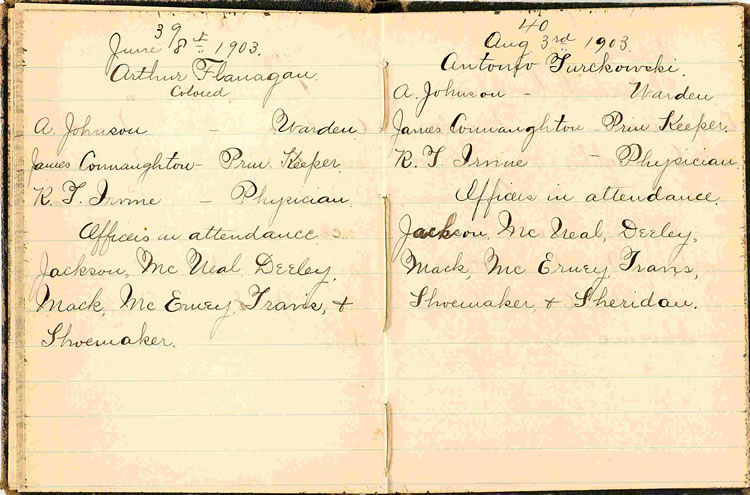 39
June 8th 1903.
Arthur Flanagan.
Colored
A. Johnson - Warden
James Connaughton - Prin Keeper.
R. T. Irvine - Physician.
Officers in attendance.
Jackson, Mc Neal, Deeley,
Mack, Mc Erney, Travis, &
Shoemaker.
40
Aug 3rd 1903.
Antonio Turckowski.
A. Johnson - Warden
James Connaughton - Prin Keeper.
R. T. Irvine - Physician
Officers in attendance.
Jackson, Mc Neal, Deeley,
Mack, Mc Erney, Travis,
Shoemaker, & Sheridan.